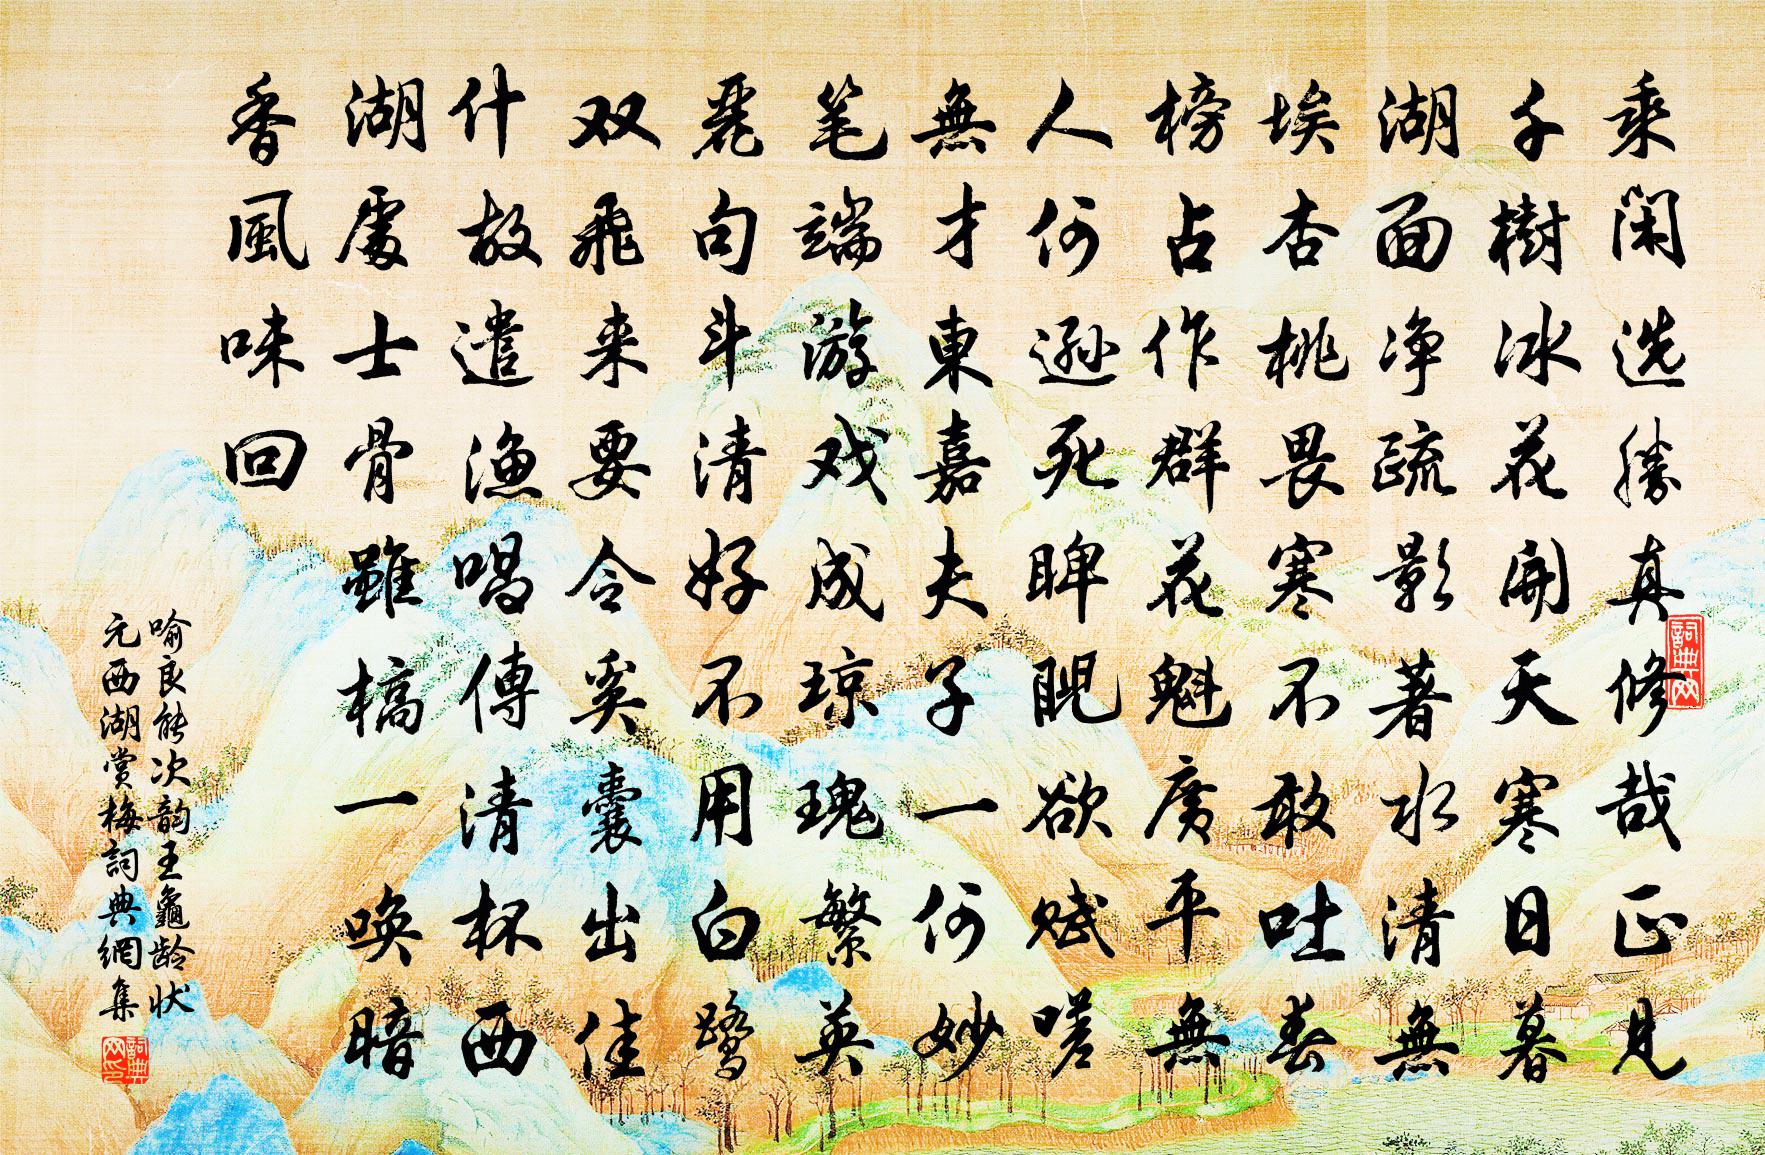 乘闲选勝真修哉正見
千樹冰花開天寒日暮
湖面净疏影著水清無
埃杏桃畏寒不敢吐春
榜占作群花魁廣平無
人何遜死睥睨欲赋嗟
無才東嘉夫子一何妙
笔端游戏成琼瑰繁英
麗句斗清好不用白鹭
双飛来要令奚囊出佳
什故遣漁唱傳清杯西
湖處士骨雖槁一唤暗
香風味回
喻良能次韵王龜龄状
元西湖赏梅詞典網集
詞典网
詞典网印